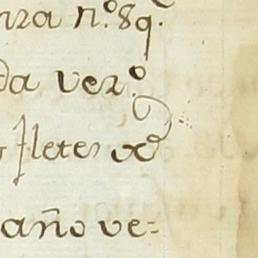 nra n.º 89.
da ver.º
Fletes
año ve=